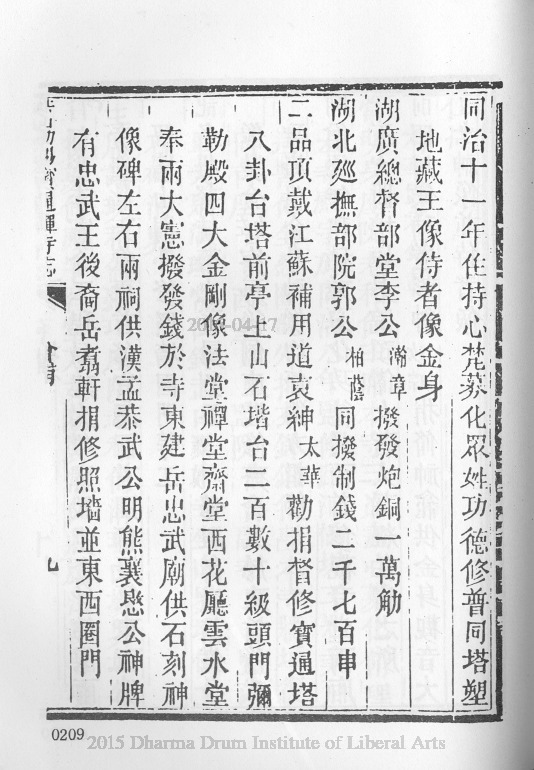 同治十一年住持心梵募化眾姓功德修普同塔塑
地藏王像侍者像金身
湖廣總督部堂李公瀚章撥發炮銅一萬觔
湖北廵撫部院郭公柏蔭同撥制錢二千七百串
二品頂戴江蘇補用道袁紳太華勸捐督修寶通塔
八卦台塔前亭上山石堦台二百數十級頭門彌
勒殿四大金剛像法堂禪堂齋堂西花廳雲水堂
奉兩大憲撥發錢於寺東建岳忠武廟供石刻神
像碑左右兩祠供漢孟恭武公明熊襄愍公神牌
有忠武王後裔岳翥軒捐修照墻並東西圈門
寶通禪寺志
九
2015-04-17
0209
2015 Dharma Drum Institute of Liberal Arts